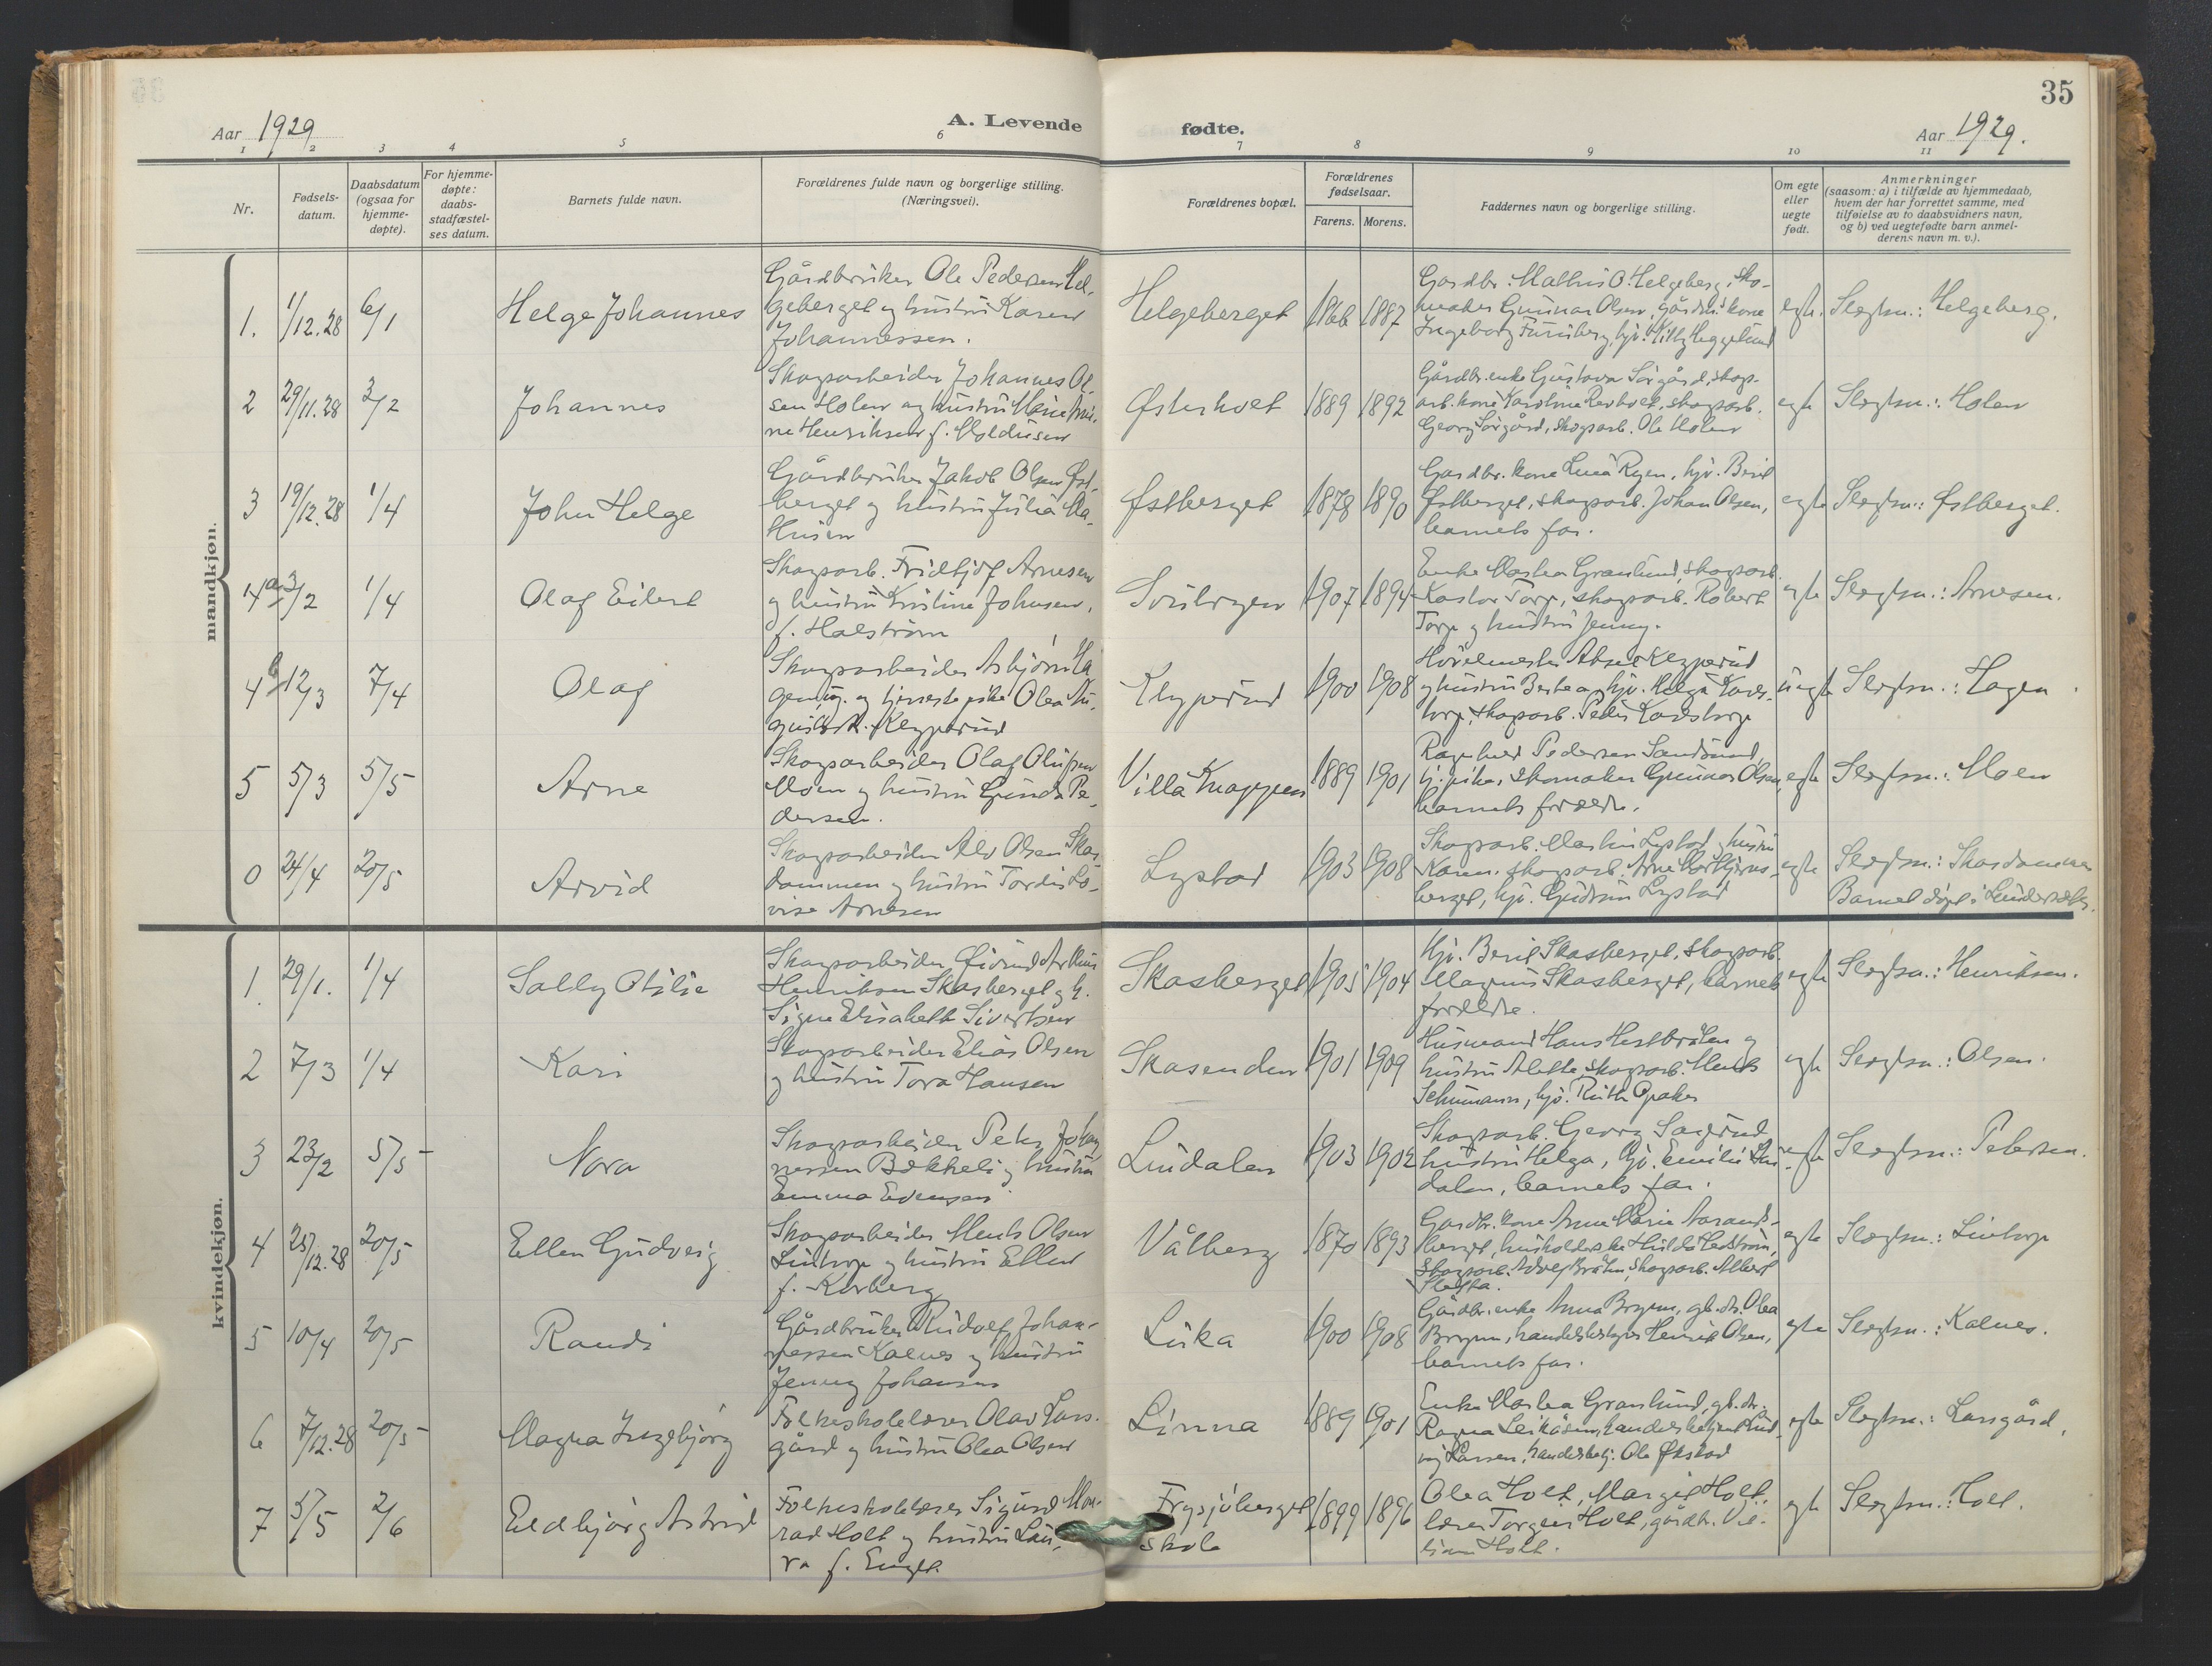 35
Aar 1929
A. Levende
fødte.
Aar 1929.
1 2 3 4 5 6 7 8 9 10 11
Nr.
Fødsels-
datum.
Daabsdatum
(ogsaa for
hjemme-
døpte).
For hjemme-
døpte:
daabs-
stadfæstel-
ses datum.
Barnets fulde navn.
Forældrenes fulde navn og borgerlige stilling.
(Næringsvei).
Forældrenes bopæl.
Forældrenes
fødselsaar.
Farens. Morens.
Faddernes navn og borgerlige stilling.
Om egte
eller
uegte
født.
Anmerkninger
(saasom: a) i tilfælde av hjemmedaab,
hvem der har forrettet samme, med
tilføielse av to daabsvidners navn,
og b) ved uegtefødte barn anmel-
derens navn m. v.).
mandkjøn.
1. 1/12.28 6/1 Helge Johannes
Gårdbruker Ole Pedersen Hel-
geberget og hustru Karen
Johannessen.
Helgeberget 1866 1887
Gardbr. Mathis O. Helgeberg, sko-
maker Gunnar Olsen, gårdbr. kone
Ingeborg Furuberg, hjv. Heggelund
egte. Slegtsn.: Helgeberg.
2 29/11.28 3/2 Johannes
Skogsarbeider Johannes Ol-
sen Holen og hustru Marie
Henriksen f.
Østerholt 1889 1892
Gårdbr.enke Gustava Sørgård, skogs-
arb. kone Karoline Revholt, skogsarb.
Georg Sørgård, skogsarb. Ole Holen
egte Slegtsn.: Holen
3 19/12.28 1/4 John Helge
Gårdbruker Jakob Olsen Øst-
berget og hustru Julia Ma-
Husen
Østberget 1878 1890
Gardbr. kone Ryen, hjv. Berit
Østberget, skogsarb. Johan Olsen,
barnets far.
egte Slegtsn.: Østberget.
4a 3/2 1/4 Olaf Eilert
Skogsarb. Fridtjof Arnesen
og hustru Kristine Johnsen,
f. Halstrøm
1907 1894
Enke Martea Granlund, skogsarb.
Kastor Torp, skogsarb. Robert
Torp og hustru Jenny.
egte Slegtsn.: Arnesen.
4b 12/3 7/4 Olaf
Skogsarbeider Asbjørn Ha
gen, ug. og tjenestepike Olea Au-
gusta Klypperud
Klypperud 1900 1908
Høvelmester Aksel Klypperud
og hustru Bertea, hjv. Helga Karls-
torp, skogsarb. Peder Karlstorp
uegte Slegtsn.: Hagen.
5 5/3 5/5 Arne
Skogsarbeider Olaf Olufsen
Moen og hustru Gunda Pe-
dersen.
Villa Knappen 1889 1901
Ragnhild Pedersen Sandsund,
tj. pike, skomaker Gunnar Olsen,
barnets foreldre.
egte Slegtsn.: Moen
0 24/4 20/5 Arvid
Skogsarbeider Alv Olsen Skas-
dammen og hustru Tordis Lo-
vise Arnesen
Lystad 1903 1908
Skogsarb. Martin Lystad og hustru
Karen, skogsarb. Arne
berget, hjv. Gudrun Lystad
egte Slegtsn.: Skasdammen
Barnet døpt i Lundersæter.
kvindekjøn.
1. 29/1. 1/4 Solly Otilie
Skogsarbeider Øivind Arthur
Henriksen Skasberget og h.
Signe Elisabeth Sivertsen
Skasberget 1905 1904
Hjv. Berit Skasberget, skogsarb.
Magnus Skasberget, barnets
foreldre.
egte Slegtsn.: Henriksen.
2 7/3 1/4 Kari
Skogsarbeider Elias Olsen
og hustru Tora Hansen
Skasenden 1901 1909
Husmand Hans Hestbråten og
hustru Alette, skogsarb. Ments
Schumann, hjv. Ruth Opaker
egte Slegtsn.: Olsen.
3 23/2 5/5 Nora
Skogsarbeider Peter Johan
nessen Bekkeli og hustru
Emma Evensen.
Lindalen 1903 1902
Skogsarb. Georg Sagerud
hustru Helga, hjv. Emilie Lin-
dalen, barnets far.
egte Slegtsn.: Petersen.
4 25/12.28 20/5 Ellen Gudveig
Skogsarbeider Ments Olsen
Lintorp og hustru Ellen
f. Korberg
Vålberg 1870 1893
Gardbr. kone Anne Marie Aarands-
berget, husholderske Hulda Hedstrøm,
skogsarb. Adolf Bråten, skogsarb. Albert
Sletta.
egte Slegtsn.: Lintorp
5 10/4 20/5 Randi
Gårdbruker Rudolf Johan-
nessen Kalnes og hustru
Jenny Johansen
Luka 1900 1908
Gårdbr. enke Anna Brynn, gb. dt. Olea
Brynn, handelsbestyrer Henrik Olsen,
barnets far.
egte Slegtsn.: Kalnes.
6 7/12.28 20/5 Magna Ingebjørg
Folkeskolelærer Olav Lars-
gård og hustru Olea Olsen
Linna 1889 1901
Enke Martea Granlund, gb. dt.
Ragna Leikåsen, handelsbetjent Lud-
vig Larsen, handelsbetj. Ole Økstad
egte Slegtsn.: Larsgård.
7 5/5 2/6 Eldbjørg Astrid
Folkeskolelærer Sigurd Mon-
rad Holt og hustru Lau-
ra f. Enget.
Frysjøberget
skole
1899 1896
Olea Holt, Margit Holt,
lærer Torgeir Holt, gårdbr. Vil-
liam Holt.
egte Slegtsn.: Holt.